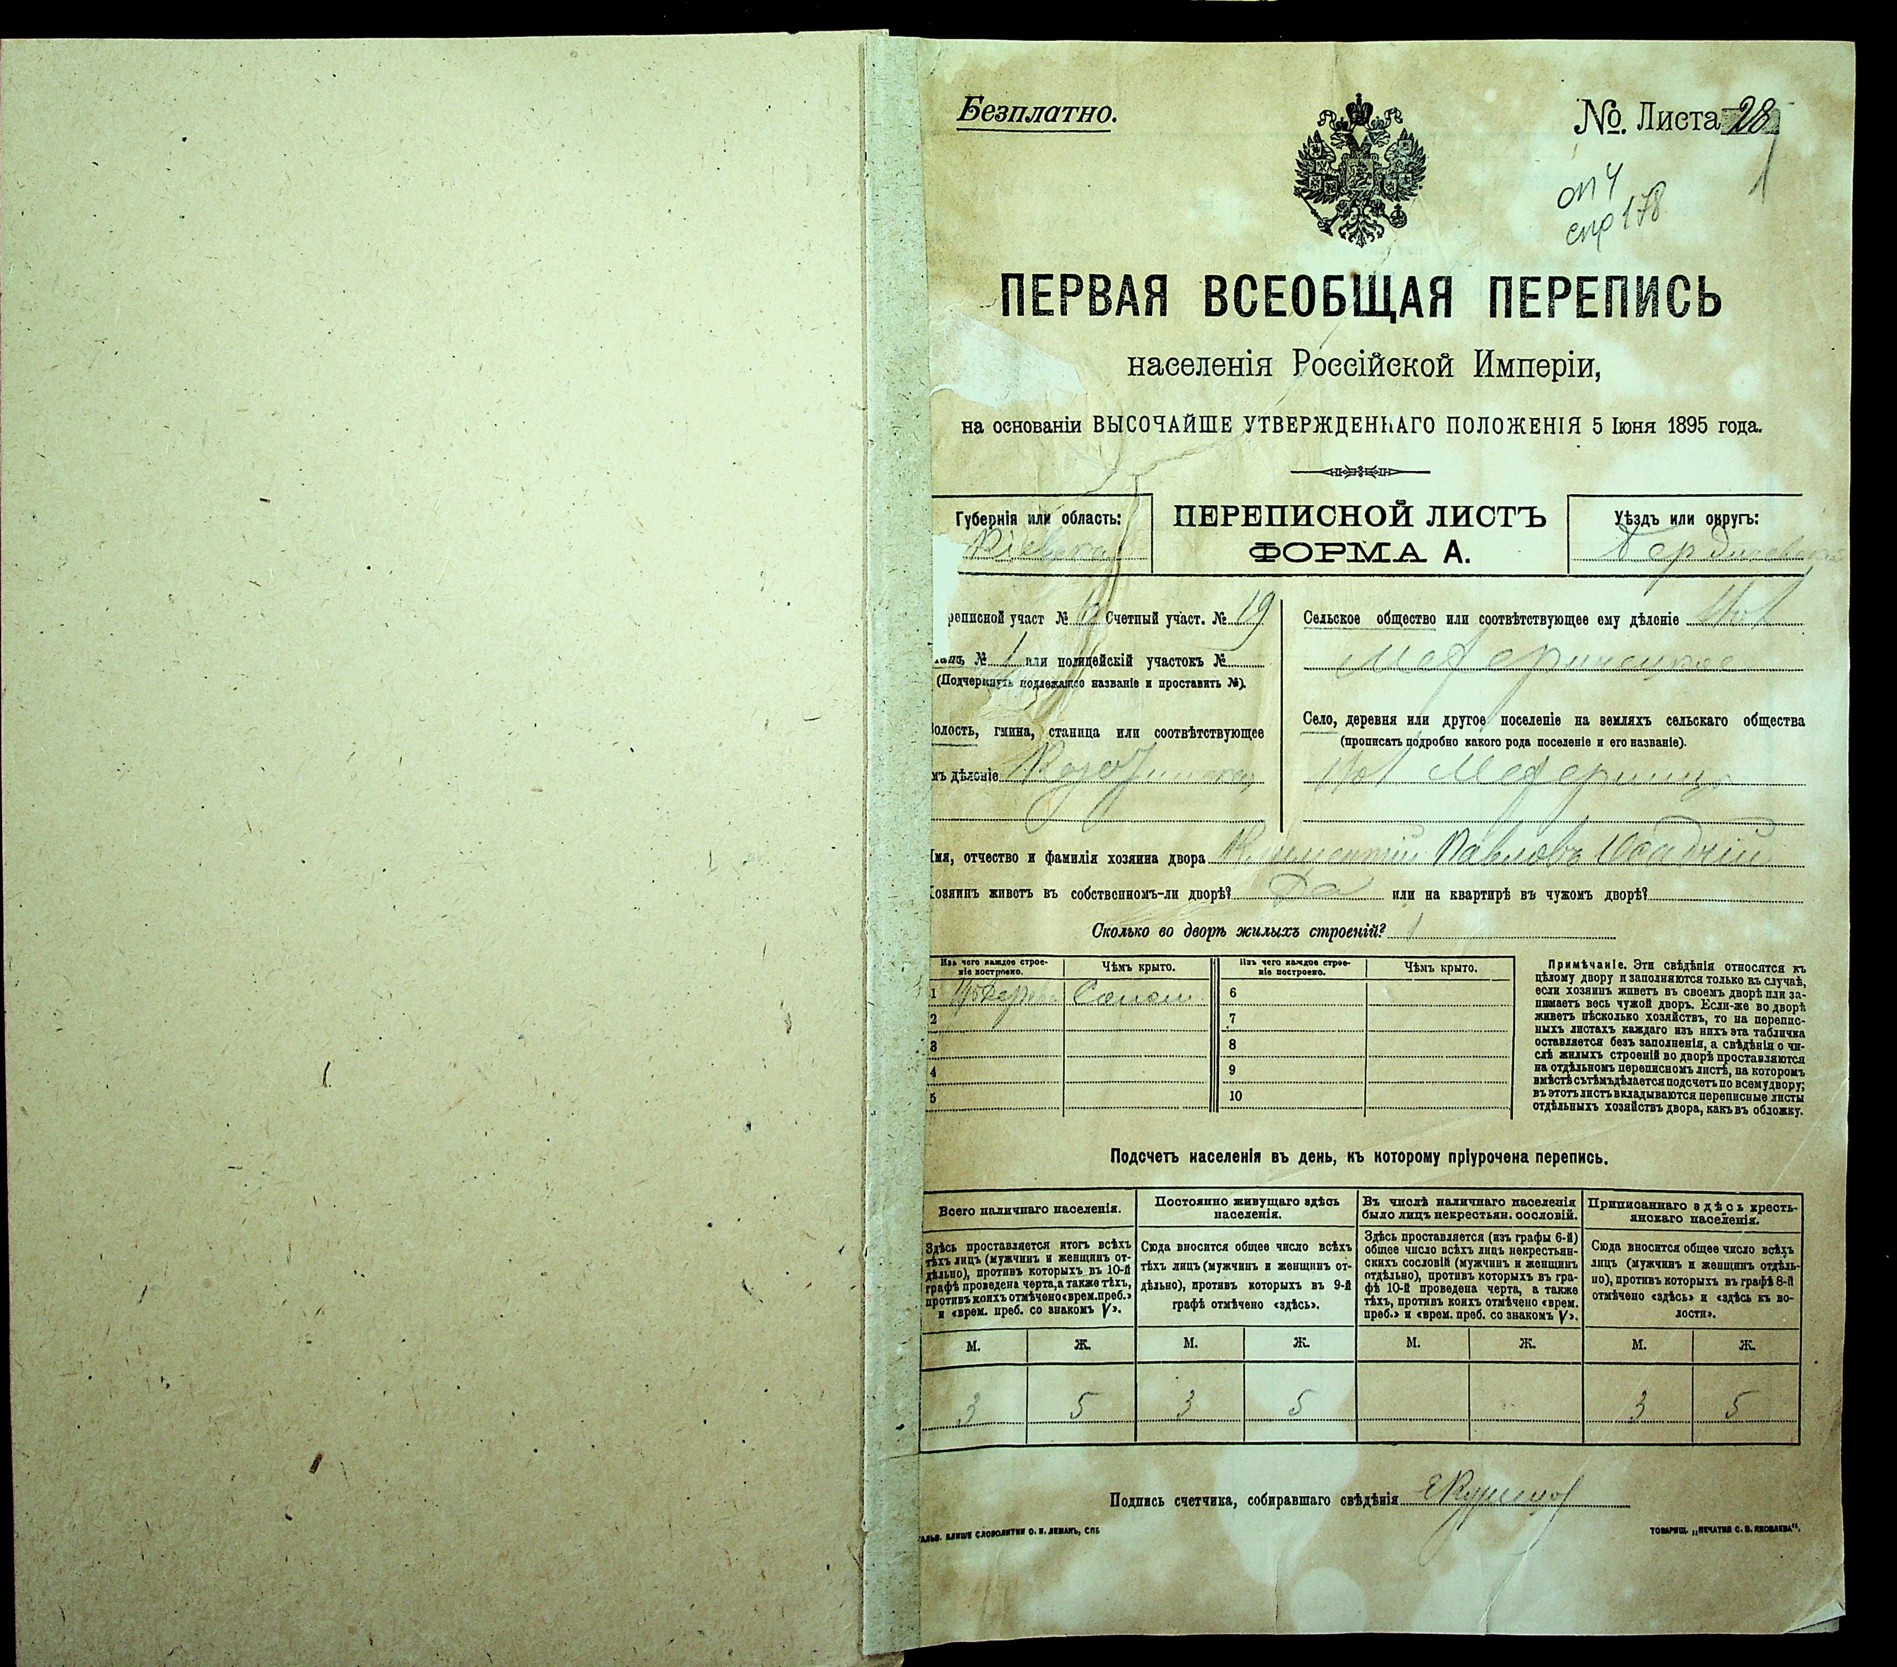 Безплатно.
№. Листа 28
1
оп 4
спр 178
ПЕРВАЯ ВСЕОБЩАЯ ПЕРЕПИСЬ
населенія Россійской Имперіи,
на основаніи ВЫСОЧАЙШЕ УТВЕРЖДЕННАГО ПОЛОЖЕНІЯ 5 Іюня 1895 года.
Губернія или область:
Кіевская
ПЕРЕПИСНОЙ ЛИСТЪ
ФОРМА А.
Уѣздъ или округъ:
Бердичевскій
реписной участ № Счетный участ. № 19
№ 1 или полицейскій участокъ №
(Подчеркнуть подлежащее названіе и проставить №).
олость, гмина, станица или соотвѣтствующее
мъ дѣленіе
Сельское общество или соотвѣтствующее ему дѣленіе
Село, деревня или другое поселеніе на земляхъ сельскаго общества
(прописать подробно какого рода поселеніе и его названіе).
мя, отчество и фамилія хозяина двора Павловъ
озяинъ живетъ въ собственномъ-ли дворѣ? Да или на квартирѣ въ чужомъ дворѣ?
Сколько во дворѣ жилыхъ строеній? 1
Изъ чего каждое строе-
ніе построено.
Чѣмъ крыто.
Изъ чего каждое строе-
ніе построено.
Чѣмъ крыто.
1 6
2 7
3 8
4 9
5 10
Примѣчаніе. Эти свѣдѣнія относятся къ
цѣлому двору и заполняются только въ случаѣ,
если хозяинъ живетъ въ своемъ дворѣ или за-
нимаетъ весь чужой дворъ. Если-же во дворѣ
живетъ нѣсколько хозяйствъ, то на перепис-
ныхъ листахъ каждаго изъ нихъ эта табличка
оставляется безъ заполненія, а свѣдѣнія о чи-
слѣ жилыхъ строеній во дворѣ проставляются
на отдѣльномъ переписномъ листѣ, на которомъ
вмѣстѣ съ тѣмъ дѣлается подсчетъ по всему двору;
въ этотъ листъ вкладываются переписные листы
отдѣльныхъ хозяйствъ двора, какъ въ обложку.
Подсчетъ населенія въ день, къ которому пріурочена перепись.
Всего наличнаго населенія.
Здѣсь проставляется итогъ всѣхъ
тѣхъ лицъ (мужчинъ и женщинъ от-
дѣльно), противъ которыхъ въ 10-й
графѣ проведена черта, а также тѣхъ,
противъ коихъ отмѣчено «врем. преб.»
и «врем. преб. со знакомъ V».
Постоянно живущаго здѣсь
населенія.
Сюда вносится общее число всѣхъ
тѣхъ лицъ (мужчинъ и женщинъ от-
дѣльно), противъ которыхъ въ 9-й
графѣ отмѣчено «здѣсь».
Въ числѣ наличнаго населенія
было лицъ некрестьян. сословій.
Здѣсь проставляется (изъ графы 6-й)
общее число всѣхъ лицъ некрестьян-
скихъ сословій (мужчинъ и женщинъ
отдѣльно), противъ которыхъ въ гра-
фѣ 10-й проведена черта, а также
тѣхъ, противъ коихъ отмѣчено «врем.
преб.» и «врем. преб. со знакомъ V».
Приписаннаго здѣсь кресть-
янскаго населенія.
Сюда вносится общее число всѣхъ
лицъ (мужчинъ и женщинъ отдѣль-
но), противъ которыхъ въ графѣ 8-й
отмѣчено «здѣсь» и «здѣсь къ во-
лости».
М. Ж. М. Ж. М. Ж. М. Ж.
3 5 3 5 3 5
Подпись счетчика, собиравшаго свѣдѣнія
АЛЬВ. КЛИШЕ СЛОВОЛИТНИ О. И. ЛЕМАНЪ, СПБ
ТОВАРИЩ. „ПЕЧАТНЯ С. П. ЯКОВЛЕВА“.